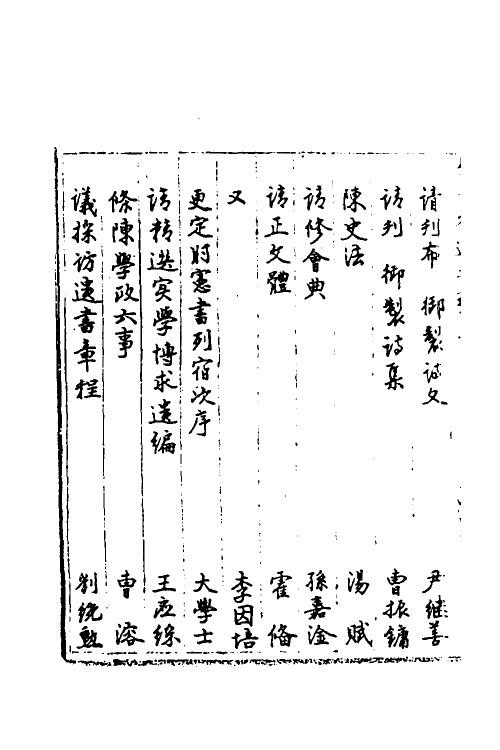 請刊布 御製詩文 尹繼善
請刊 御製詩集 曹振鏞
陳史法 湯斌
請修會典 孫嘉淦
請正文體 霍備
又 李因培
更定時憲書列宿次序 大學士
請精選實學博求遺編 王應綵
條陳學政六事 曹溶
議採訪遺書章程 劉統勳